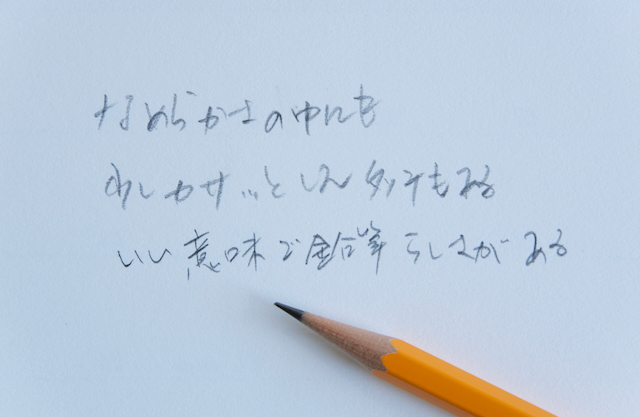 なめらかさの中にも
少しカサッとしたタッチもある
いい意味で鉛筆らしさがある